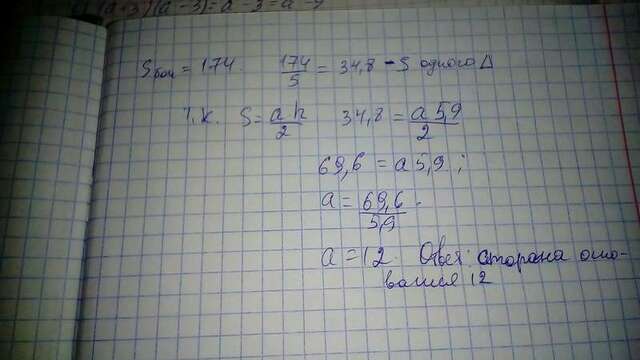 Sбок = 174. 174/5 = 34,8 - S одного Δ
т.к. S = a h/2 34,8 = a 5,9/2
69,6 = a 5,9;
a = 69,6/5,9.
a = 12. Ответ: сторона осно-
вания 12